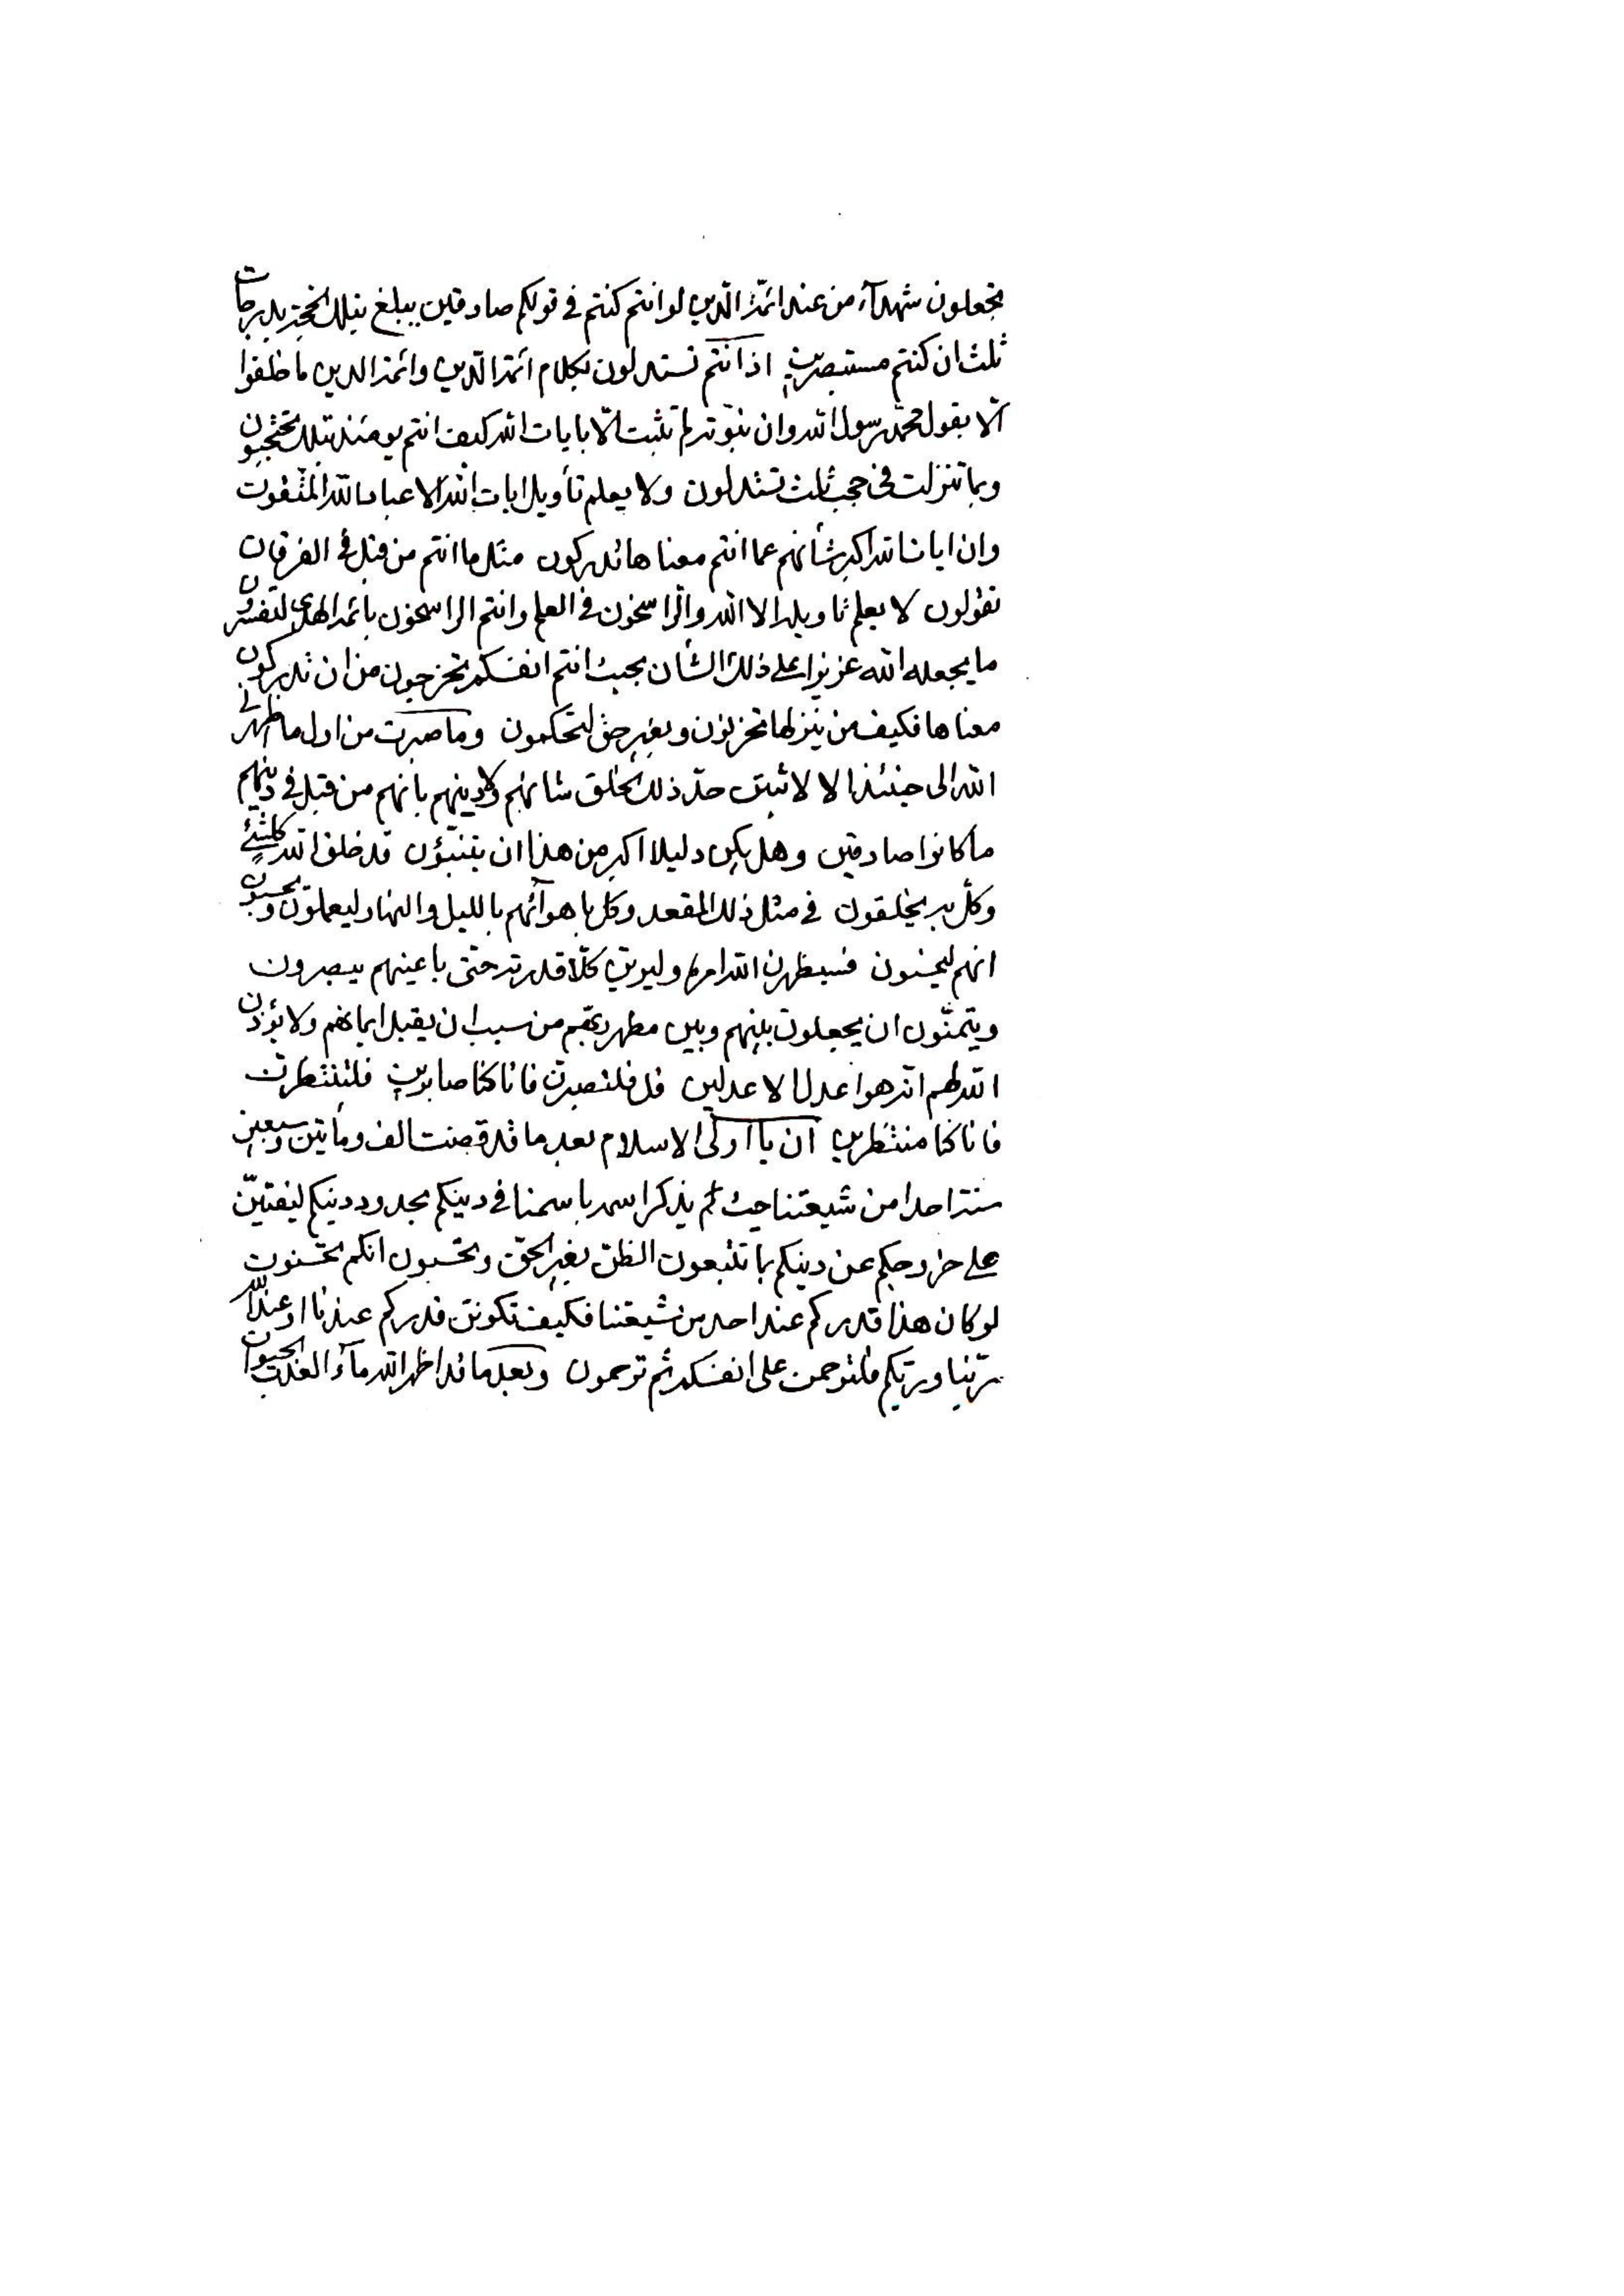 تجعلون شهدآء من عند ائمّة الّدين لو انتم كنتم في قولكم صادقين يبلغ بتلك الحجة بدرجات
ثلث ان كنتم مستبصرين اذ انتم تستدلون بكلام ائمة الّدين وائمة الدين ما خلقوا
الّا بقول محمّد رسول الله وان نبوّته لم تثبت الّا بايات الله كيف انتم يومئذ بتلك تحتجبون
وبما تنزلت في حجب ثلث تستدلون ولا يعلم تأويل ايات الله الا عباد الله المتقون
وان ايات الله اكبر شأنهم عما انتم معناها تدركون مثل ما انتم من قبل في الفرقان
تقولون لا يعلم تاويله الا الله والراسخون في العلم وانتم الراسخون بائمة الهدى لتفسرون
ما يجعله الله عزيزا على ذلك الشأن بحيث انتم انفسكم تخرجون من ان تدركون
معناها فكيف من ينزلها تحزنون وبغير حق لتحكمون وما صبرت من اول ما اظهرني
الله الى حينئذ الا لاثبتن حدّ ذلك الخلق شانهم ولا دينهم بانهم من قبل في دينهم
ما كانوا صادقين وهل يكن دليلا اكبر من هذا ان يتنبؤن قد خلق الله كلشئ
وكل به يخلقون في مثل ذلك المقعد وكل باهوائهم بالليل والنهار ليعملون ويحسبون
انهم ليحسنون فسيظهرن الله امره وليرين كلّا قدرته حتى باعينهم يبصرون
ويتمنّون ان يجعلون بينهم وبين مظهر ربهم من سبب ان يقبل ايمانهم ولا يؤذن
الله لهم انه هو اعدل الاعدلين قل فلتصبرن فانا كنا صابرين فلتنتظرن
فانا كنا منتظرين ان يا اولى الاسلام بعد ما قد قضت الف ومأتين وسبعين
سنة احدا من شيعتنا حيث لم يذكر اسمه باسمنا في دينكم بحدود دينكم ليفتينّ
على خروجكم عن دينكم بما تتبعون الظن بغير الحق وتحسبون انكم تحسنون
لو كان هذا قدركم عند احد من شيعتنا فكيف تكونن قدركم عندنا او عند الله
ربّنا وربّكم فلترحمن على انفسكم ثم ترحمون وبعد ما قد اظهر الله مآء العذب الحيوان